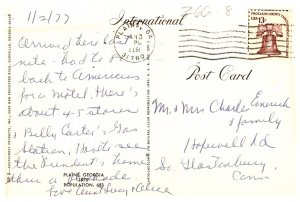 11/2/77
International
366-8
PLAINS, GA
PM
1977
31780
USA 13c
Arrived here last
nite - had to go
back to Americus
for a motel. There's
about 4-5 stores
& Billy Carter's Gas
Station, Had to see
the President's home
thru a
Love Aunt Lucy &
Post Card
Mr. & Mrs Charles
& family
Hopewell Rd
So. Glastonbury,
Conn
PLAINS, GEORGIA
POPULATION: 683